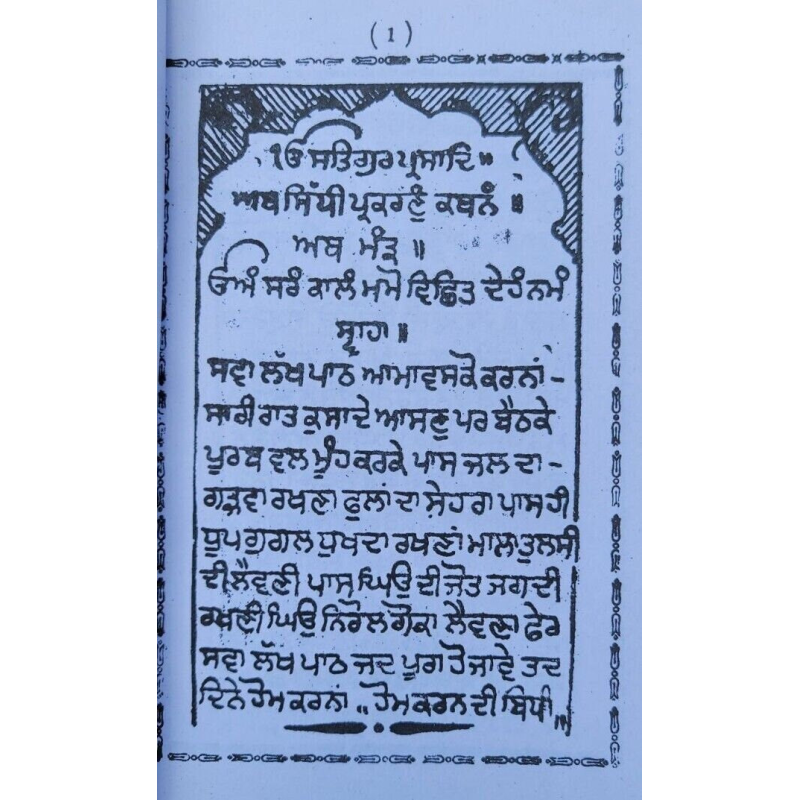 ( 1 )
ੴ ਸਤਿਗੁਰ ਪ੍ਰਸਾਦਿ ॥
ਅਥ ਸਿੱਧੀ ਪ੍ਰਕਰਣੰ ਕਥਨੰ ॥
ਅਥ ਮੰਤ੍ਰ ॥
ਓਅੰ ਸਰੰ ਕਾਲੰ ਮਮੋ ਵਿਛਿਤ ਦੇਹੰ ਨਮੰ
ਸ੍ਵਾਹਾ ॥
ਸਵਾ ਲੱਖ ਪਾਠ ਆਮਾਵਸ ਕੋ ਕਰਨਾਂ -
ਸਾਰੀ ਰਾਤ ਕੁਸਾ ਦੇ ਆਸਣੁ ਪਰ ਬੈਠ ਕੇ
ਪੂਰਬ ਵਲ ਮੂੰਹ ਕਰਕੇ ਪਾਸ ਜਲ ਦਾ -
ਗੜਵਾ ਰਖਣਾ ਫੁਲਾਂ ਦਾ ਸੇਹਰਾ ਪਾਸ ਹੀ
ਧੂਪ ਗੁਗਲ ਧੁਖਦਾ ਰਖਣਾਂ ਮਾਲਾ ਤੁਲਸੀ
ਦੀ ਲੈਵਣੀ ਪਾਸ ਘਿਉ ਦੀ ਜੋਤ ਜਗਦੀ
ਰਖਣੀ ਘਿਉ ਨਿਰੋਲ ਗੋਕਾ ਲੈਵਣਾ ਫੇਰ
ਸਵਾ ਲੱਖ ਪਾਠ ਜਦ ਪੂਰਾ ਹੋ ਜਾਵੇ ਤਦ
ਦਿਨੇ ਹੋਮ ਕਰਨਾਂ ॥ ਹੋਮ ਕਰਨ ਦੀ ਬਿਧੀ ॥